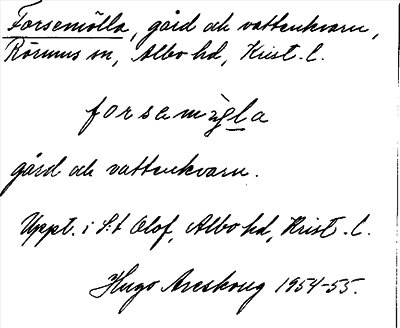 Forsemölla, gård och vattenkvarn,
Rörums sn, Albo hd, Krist. l.
forsamỳla
gård och vattenkvarn.
Uppt. i S:t Olof, Albo hd, Krist. l.
Hugo Areskoug 1954-55.